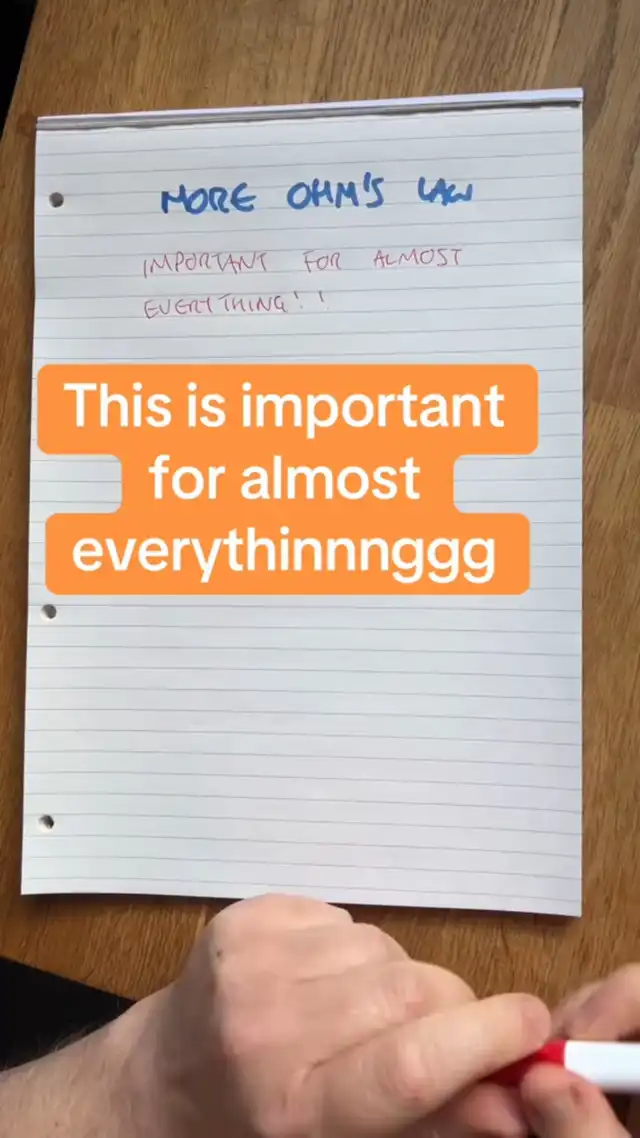 MORE OHM'S LAW
IMPORTANT FOR ALMOST
EVERYTHING!!
This is important
for almost
everythinnnggg